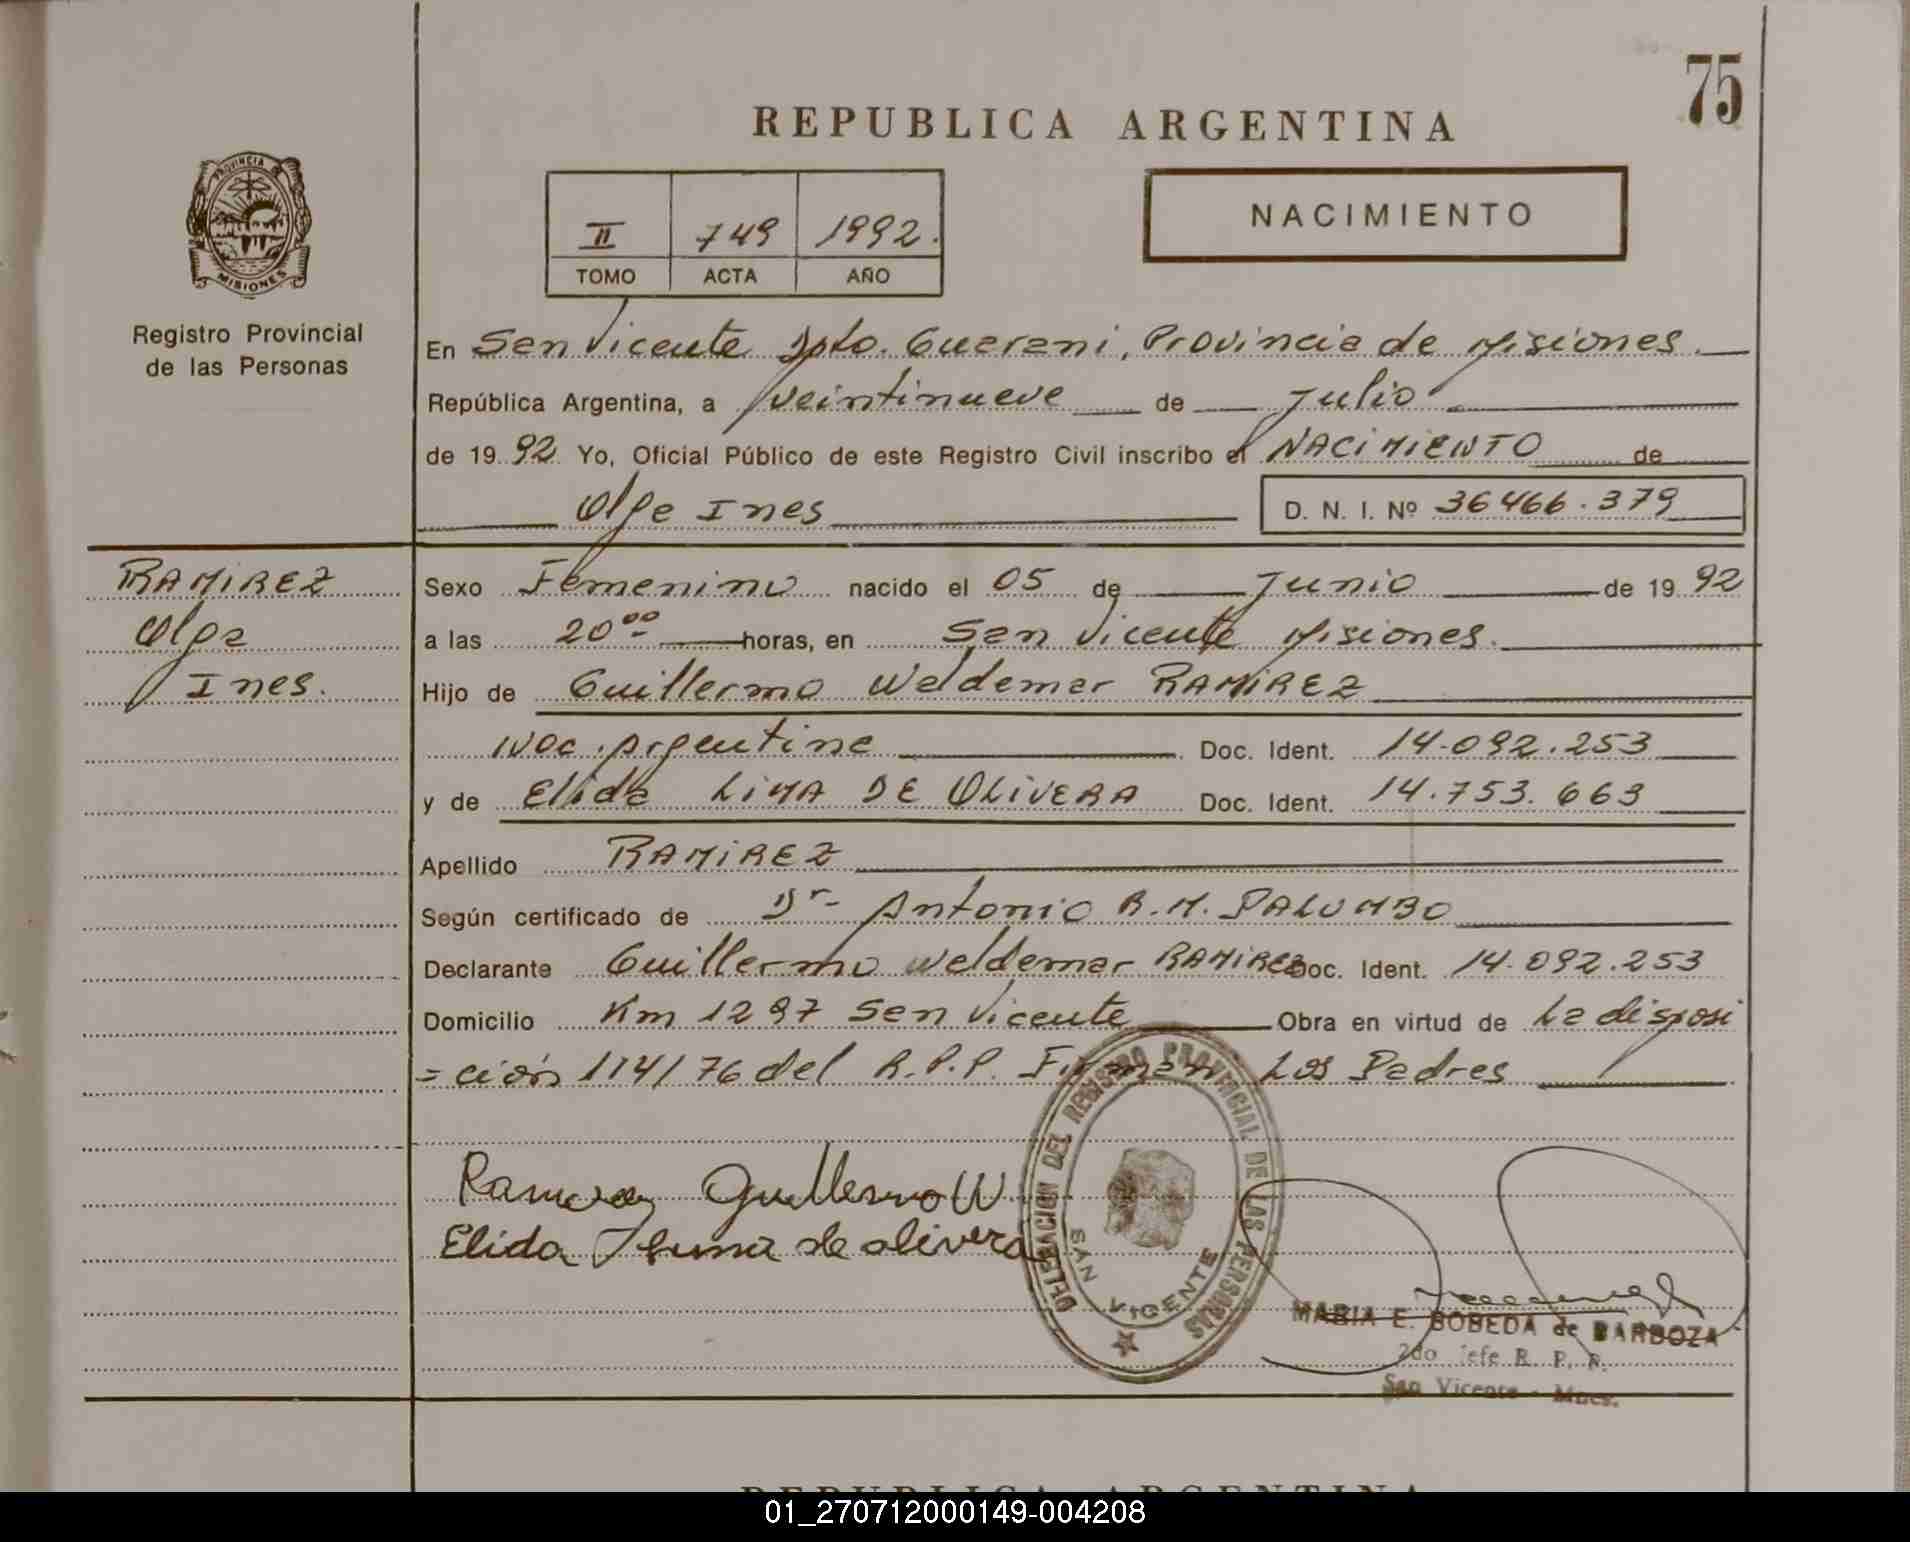 75
REPUBLICA ARGENTINA
PROVINCIA
MISIONES
Registro Provincial
de las Personas
II 749 1992.
TOMO ACTA AÑO
NACIMIENTO
En San Vicente Dpto. Guarani, Provincia de Misiones.
República Argentina, a veintinueve de Julio
de 1992 Yo, Oficial Público de este Registro Civil inscribo el NACIMIENTO de
Olga Ines
D. N. I. Nº 36466.379
RAMIREZ
Olga
Ines.
Sexo Femenino nacido el 05 de Junio de 1992
a las 20 00 horas, en San Vicente Misiones.
Hijo de Guillermo Waldemar RAMIREZ
Nac. Argentina Doc. Ident. 14.092.253
y de Elida LIMA DE OLIVERA Doc. Ident. 14.753.663
Apellido RAMIREZ
Según certificado de Dr. Antonio R.M. PALUMBO
Declarante Guillermo Waldemar RAMIREZ Doc. Ident. 14.092.253
Domicilio Km 1297 San Vicente Obra en virtud de La disposi
=ción 114/76 del R.P.P. Firman Los Padres
Ramirez Guillermo W
Elida Lima de olivera
DELEGACION DEL REGISTRO PROVINCIAL DE LAS PERSONAS
SAN VICENTE
MARIA E. BOBEDA de BARBOZA
2do Jefe R. P. P.
San Vicente - Mnes.
REPUBLICA ARGENTINA
01_270712000149-004208